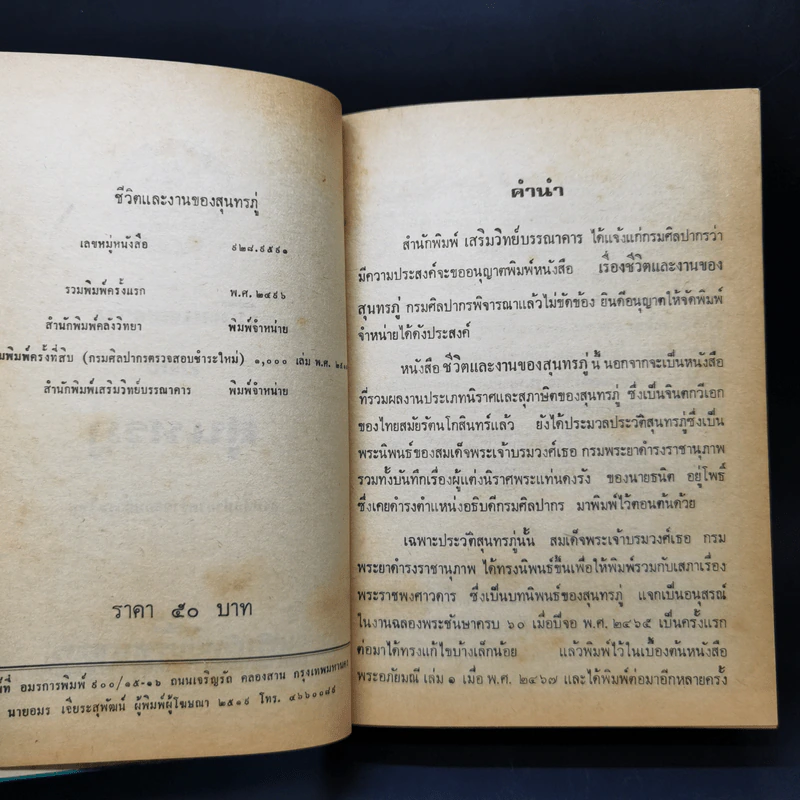 ชีวิตและงานของสุนทรภู่
เลขหมู่หนังสือ ๙๒๘.๙๕๙๑
รวมพิมพ์ครั้งแรก พ.ศ. ๒๔๙๖
สำนักพิมพ์คลังวิทยา พิมพ์จำหน่าย
พิมพ์ครั้งที่สิบ (กรมศิลปากรตรวจสอบชำระใหม่) ๑,๐๐๐ เล่ม พ.ศ.
สำนักพิมพ์เสริมวิทย์บรรณาคาร พิมพ์จำหน่าย
ราคา ๕๐ บาท
ที่ อมรการพิมพ์ ๙๐๐/๑๕-๑๖ ถนนเจริญรัถ คลองสาน กรุงเทพมหานคร
นายอมร เจียระสุพัฒน์ ผู้พิมพ์ผู้โฆษณา ๒๕๑๙ โทร. ๔๖๖๐๐๘๙
คำนำ
สำนักพิมพ์ เสริมวิทย์บรรณาคาร ได้แจ้งแก่กรมศิลปากรว่า
มีความประสงค์จะขออนุญาตพิมพ์หนังสือ เรื่องชีวิตและงานของ
สุนทรภู่ กรมศิลปากรพิจารณาแล้วไม่ขัดข้อง ยินดีอนุญาตให้จัดพิมพ์
จำหน่ายได้ดังประสงค์
หนังสือ ชีวิตและงานของสุนทรภู่ นี้ นอกจากจะเป็นหนังสือ
ที่รวมผลงานประเภทนิราศและสุภาษิตของสุนทรภู่ ซึ่งเป็นจินตกวีเอก
ของไทยสมัยรัตนโกสินทร์แล้ว ยังได้ประมวลประวัติสุนทรภู่ซึ่งเป็น
พระนิพนธ์ของสมเด็จพระเจ้าบรมวงศ์เธอ กรมพระยาดำรงราชานุภาพ
รวมทั้งบันทึกเรื่องผู้แต่งนิราศพระแท่นดงรัง ของนายธนิต อยู่โพธิ์
ซึ่งเคยดำรงตำแหน่งอธิบดีกรมศิลปากร มาพิมพ์ไว้ตอนต้นด้วย
เฉพาะประวัติสุนทรภู่นั้น สมเด็จพระเจ้าบรมวงศ์เธอ กรม
พระยาดำรงราชานุภาพ ได้ทรงนิพนธ์ขึ้นเพื่อให้พิมพ์รวมกับเสภาเรื่อง
พระราชพงศาวดาร ซึ่งเป็นบทนิพนธ์ของสุนทรภู่ แจกเป็นอนุสรณ์
ในงานฉลองพระชันษาครบ ๖๐ เมื่อปีจอ พ.ศ. ๒๔๖๕ เป็นครั้งแรก
ต่อมาได้ทรงแก้ไขบ้างเล็กน้อย แล้วพิมพ์ไว้ในเบื้องต้นหนังสือ
พระอภัยมณี เล่ม ๑ เมื่อ พ.ศ. ๒๔๖๗ และได้พิมพ์ต่อมาอีกหลายครั้ง